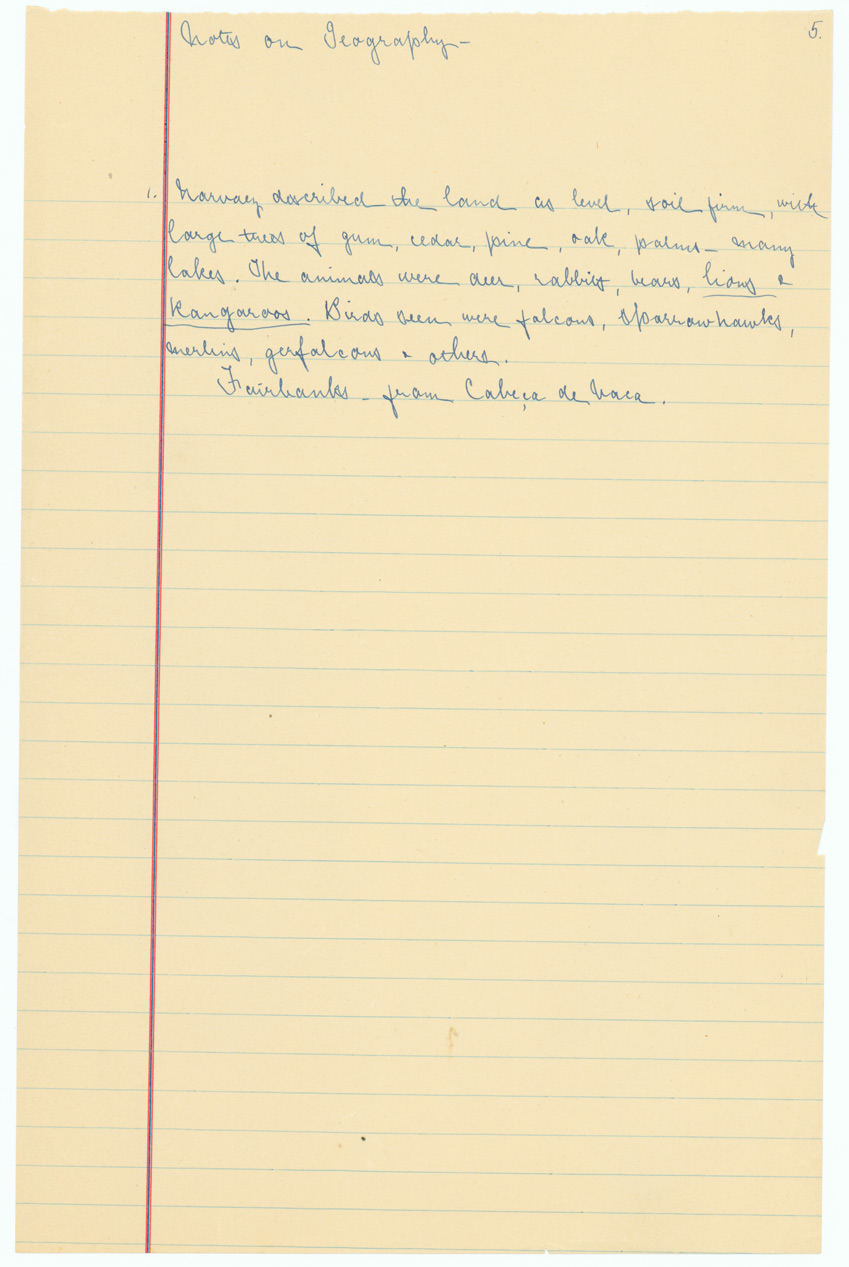 Notes on Geography –
5.
1. Narvaez described the land as level, soil firm, with
large trees of gum, cedar, pine, oak, palms – many
lakes. The animals were deer, rabbits, bears, lions &
Kangaroos. Birds seen were falcons, sparrowhawks,
merlins, gerfalcons & others.
Fairbanks – from Cabeça de Vaca.